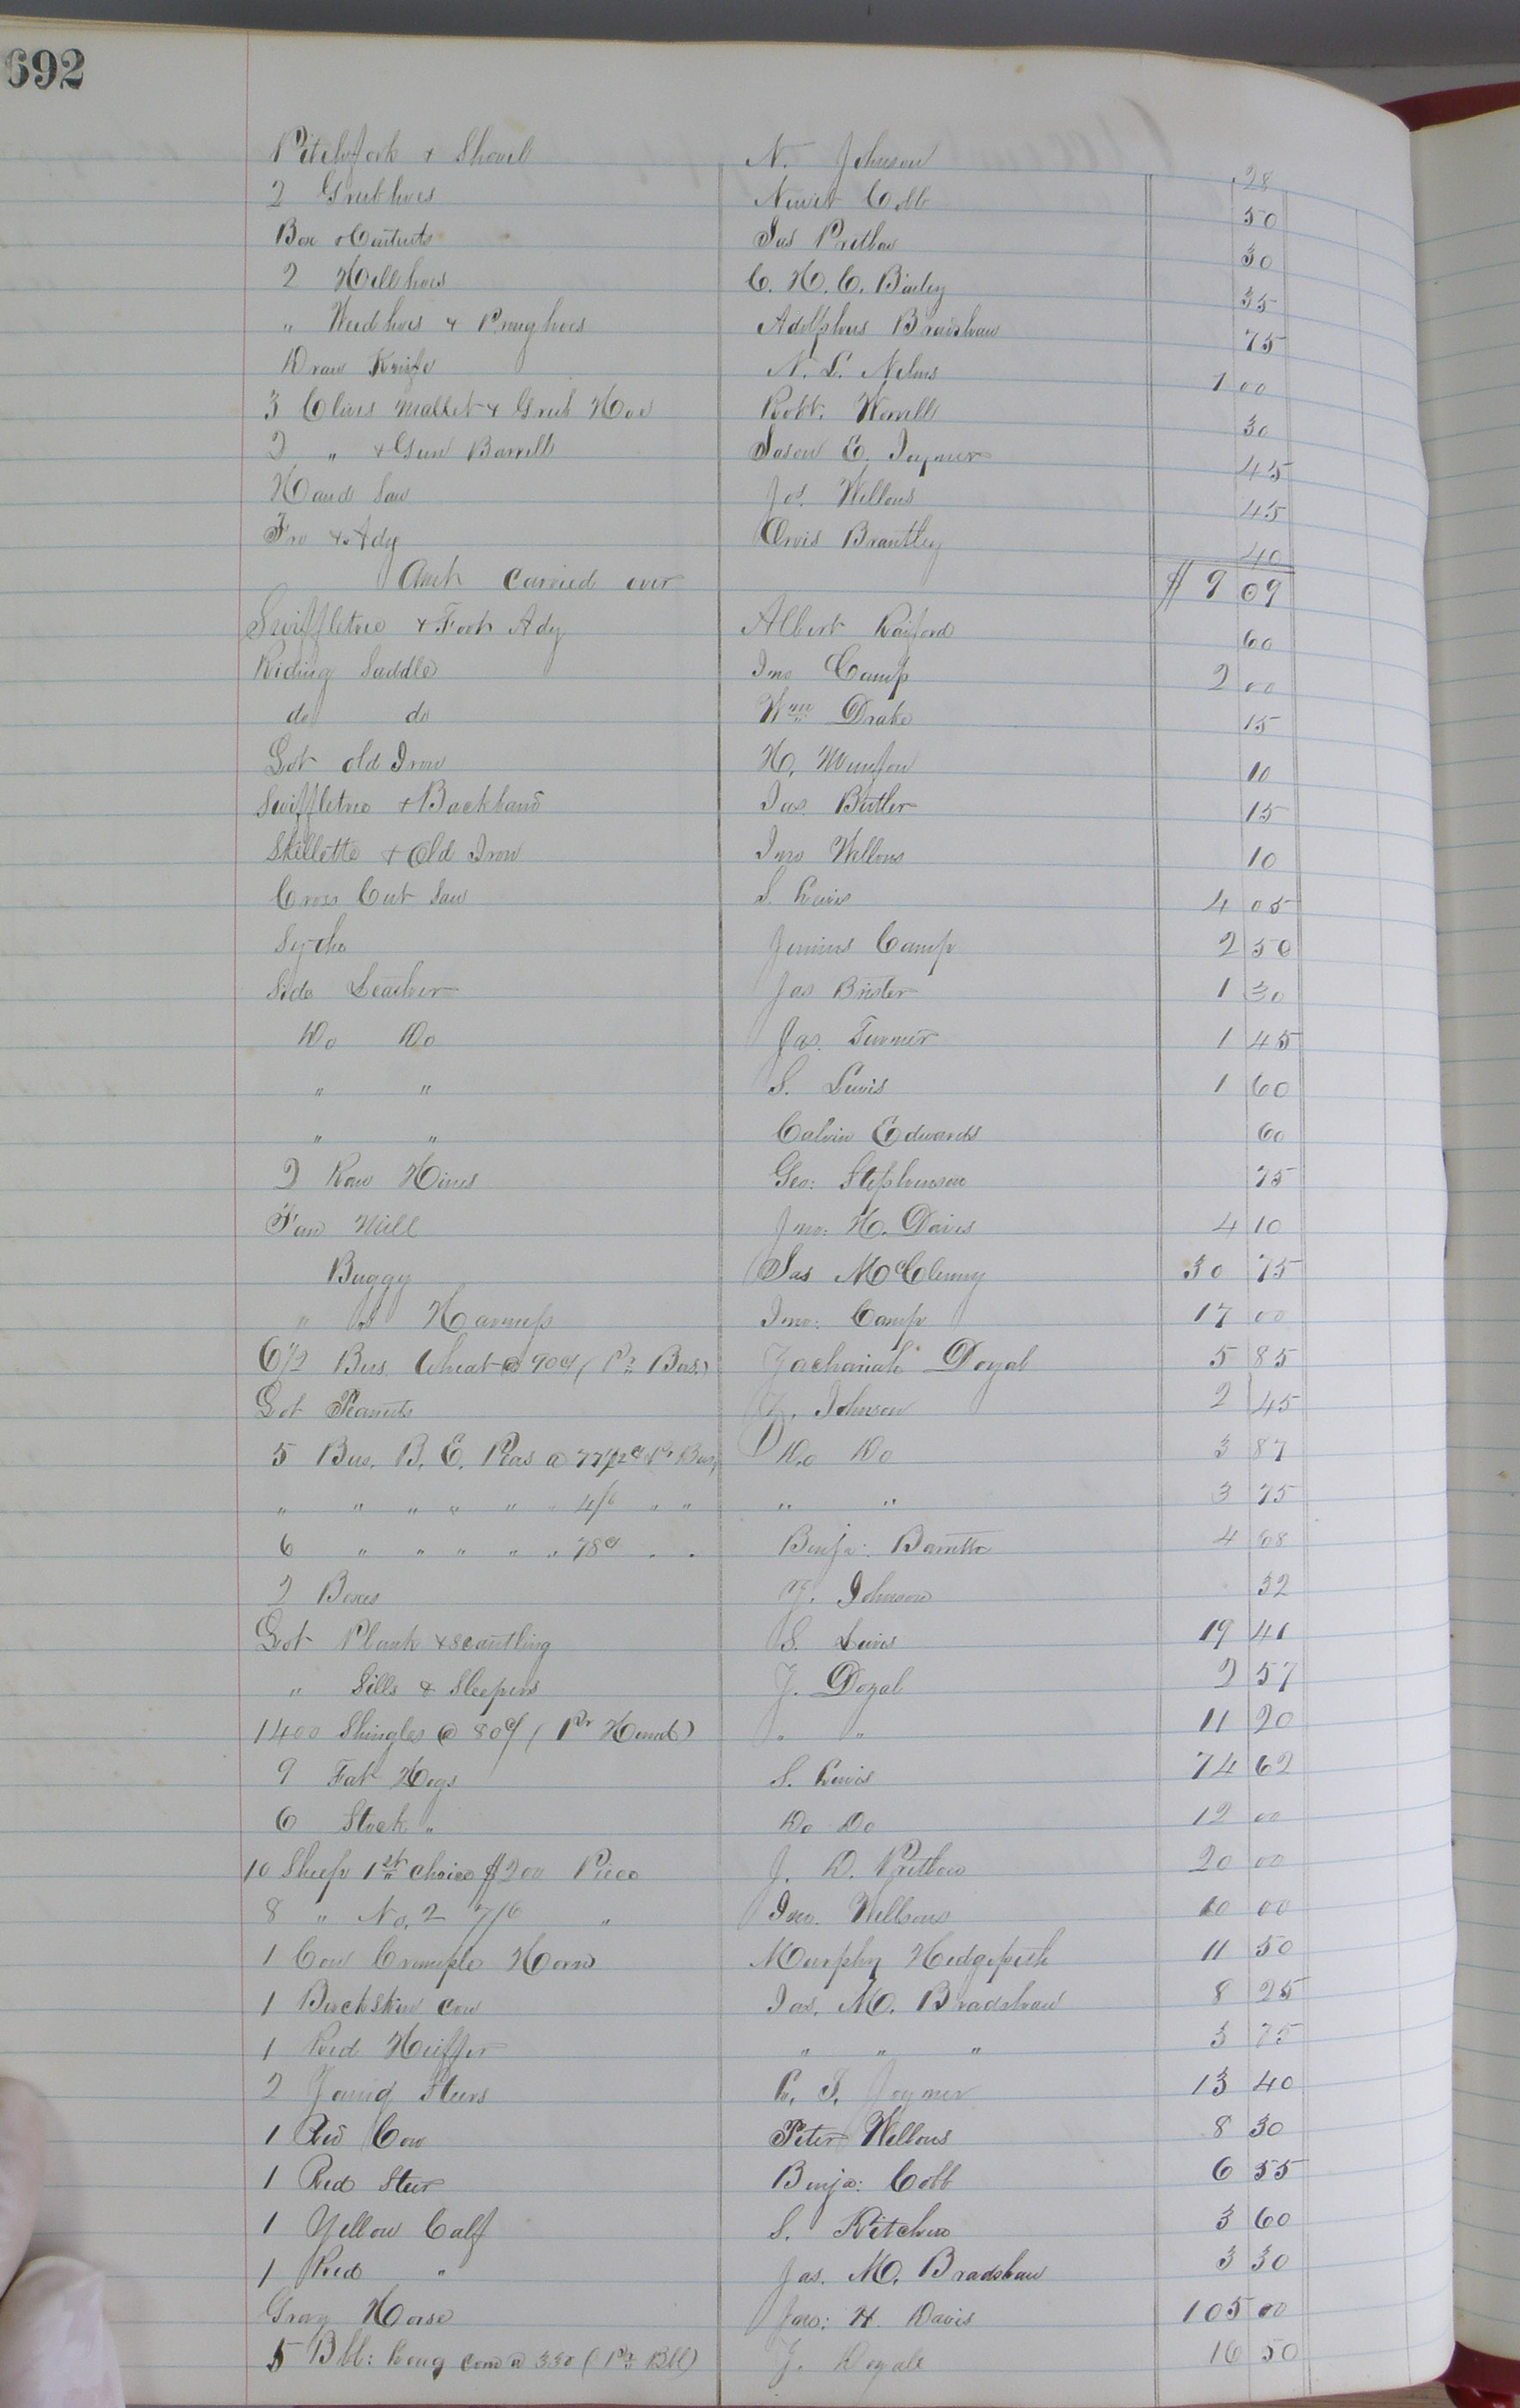 692
Pitchfork & Shovel N. Johnson 28
2 Grubhoes Newit Cobb 50
Box & Contents Jas Pretlow 30
2 Hillhoes C. H. C. Bailey 35
" Weedhoes & Pronghoes Adolphus Bradshaw 75
Draw Knife N. L. Nelms 1 00
3 Clivis mallet & Grub Hoe Robt. Worrell 30
2 " & Gun Barrell Jason E. Joyner 45
Hand Saw Jos. Wellons 45
Fro & Adz Orvis Brantley 40
Amt carried over $ 9 09
Swiffletree & Foot Adz Albert Raiford 60
Riding Saddle Jno Camp 2 00
do do Wm Drake 15
Lot old Iron H. Munford 10
Swiffletree & Backband Jas. Butler 15
Skillette & Old Iron Jno Wellons 10
Cross Cut Saw S. Lewis 4 05
Sythe Junius Camp 2 50
Side Leather Jas Brister 1 30
Do Do Jas. Turner 1 45
" " S. Lewis 1 60
" " Calvin Edwards 60
2 Raw Hides Geo: Stephenson 75
Fan Mill Jno: H. Davis 4 10
Buggy Jas McClenny 30 75
" Harness Jno: Camp 17 00
6 1/2 Bus. Wheat @ 90¢ (Pr Bus.) Zachariah Doyal 5 85
Lot Peanuts Z. Johnson 2 45
5 Bus. B. E. Peas @ 77 1/2¢ Pr Bus, Do Do 3 87
" " " " " " 4/6 " " " " 3 75
6 " " " " " 78¢ " " Benja: Barrett 4 68
2 Boxes Z. Johnson 32
Lot Plank & scantling S. Lewis 19 41
" Sills & Sleepers Z. Doyal 2 57
1400 Shingles @ 80¢ (Pr Hund) " " 11 20
9 Fat Hogs S. Lewis 74 62
6 Stock " Do Do 12 00
10 Sheep 1st choice $2 00 Piece J. D. Pretlow 20 00
8 " No. 2 7/6 " Jno. Wellons 10 00
1 Cow Crumple Horn Murphy Hedgepeth 11 50
1 Buckskin Cow Jas. M. Bradshaw 8 25
1 Red Heiffer " " " 3 75
2 Young Steers Joyner 13 40
1 Red Cow Peter Wellons 8 30
1 Red Steer Benja: Cobb 6 55
1 Yellow Calf S. Kitchen 3 60
1 Red " Jas. M. Bradshaw 3 30
Gray Horse Jno: H. Davis 105 00
5 Bbl: Long corn @ 330 (Pr Bbl) Z. Doyale 16 50